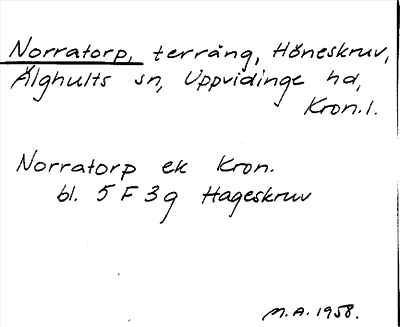 Norratorp, terräng, Höneskruv,
Älghults sn, Uppvidinge hd,
Kron.l.
Norratorp ek Kron.
bl. 5 F 3 g Hageskruv
M.A. 1958.